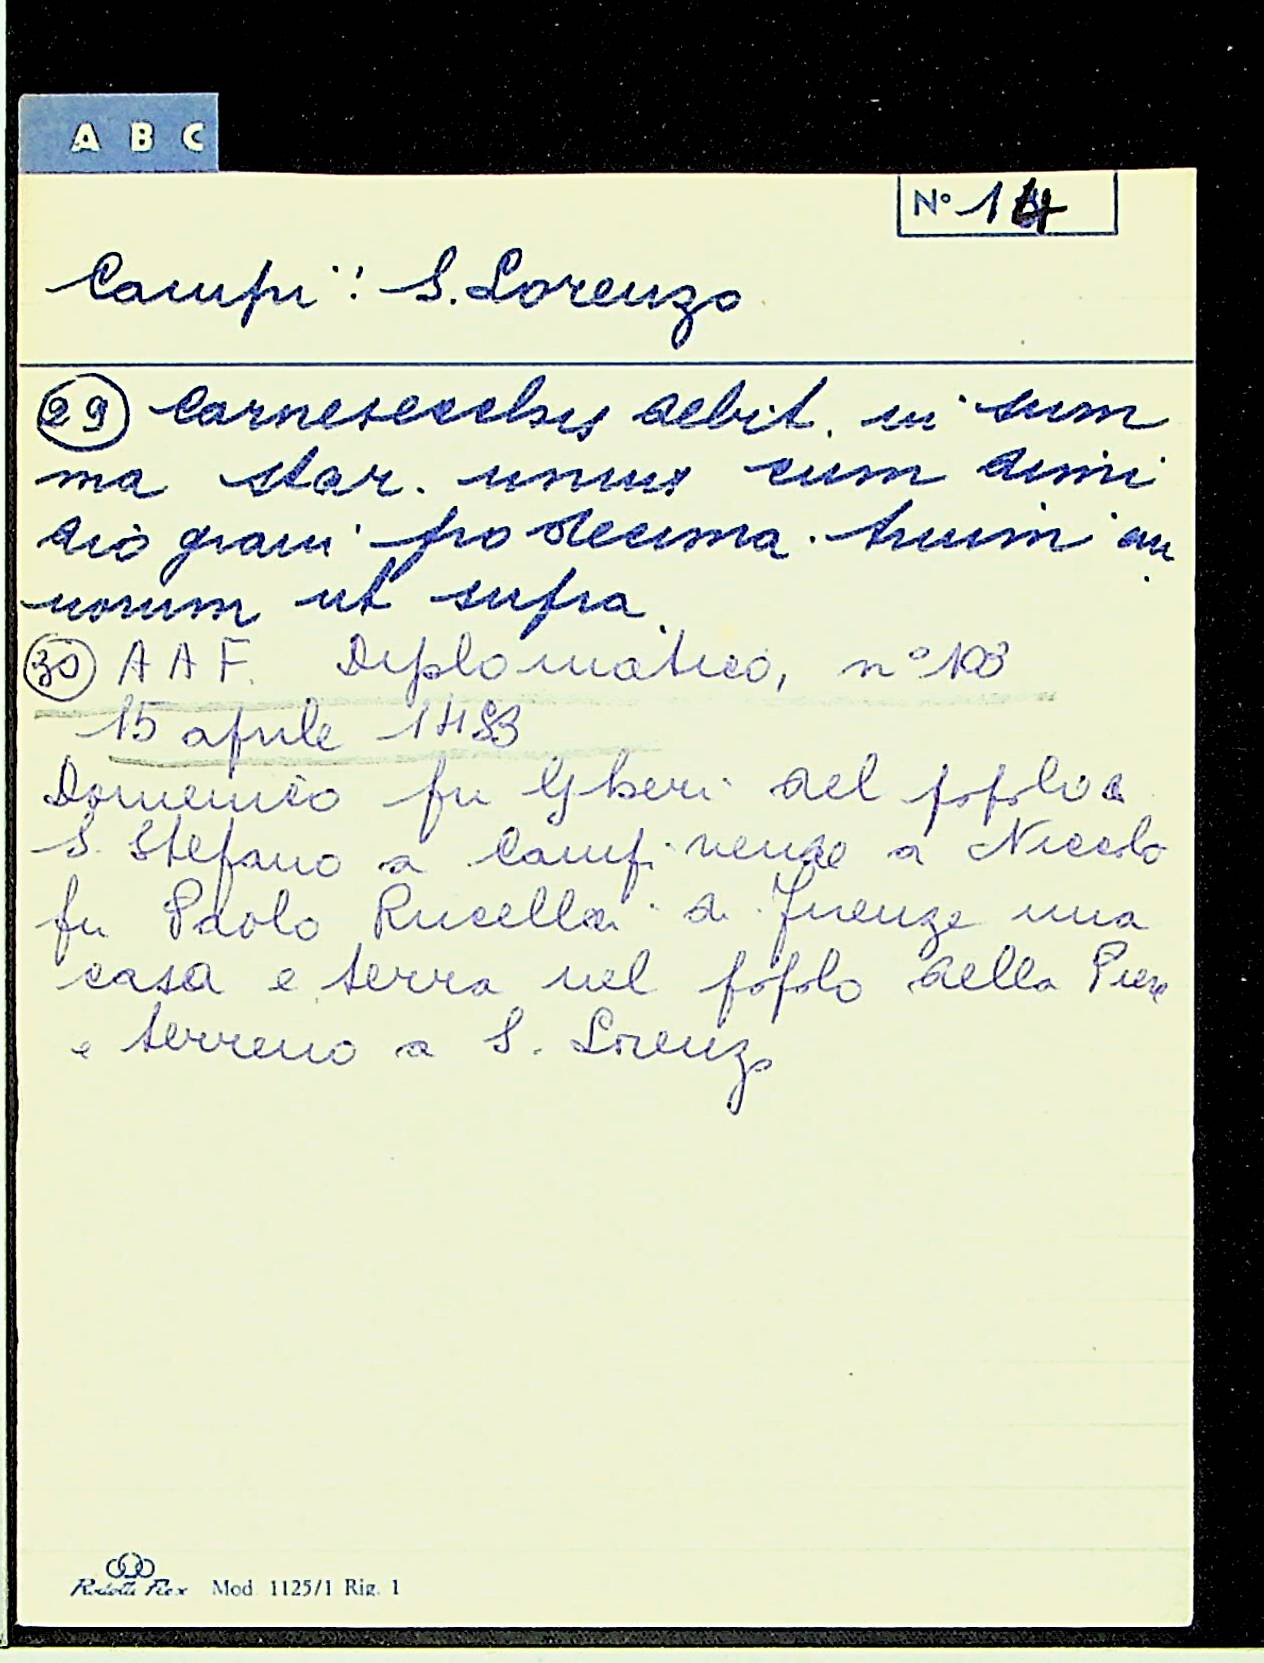 A B C
N° 14
Campi: S. Lorenzo
29 Carnesecchis debit. in sum
ma star. unius cum dimi
dio grani pro decima trium an
norum ut supra.
30 A A F. Diplomatico, n° 103
15 aprile 1483
Domenico fu Gheri del popolo d
S. Stefano a Campi vende a Niccolo
fu Paolo Rucellai di Firenze una
casa e terra nel popolo della Pieve
e terreno a S. Lorenzo
Mod. 1125/1 Rig. 1